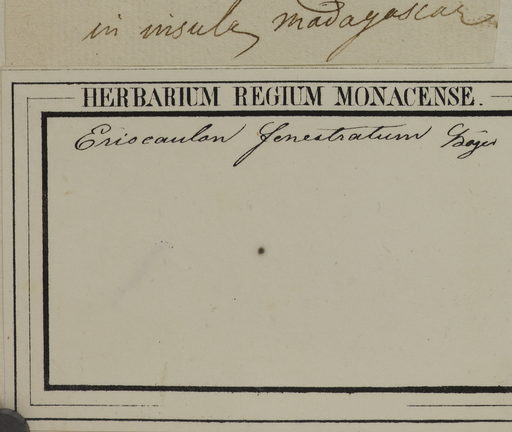 in insula madagascar
HERBARIUM REGIUM MONACENSE.
Eriocaulon fenestratum Bojer